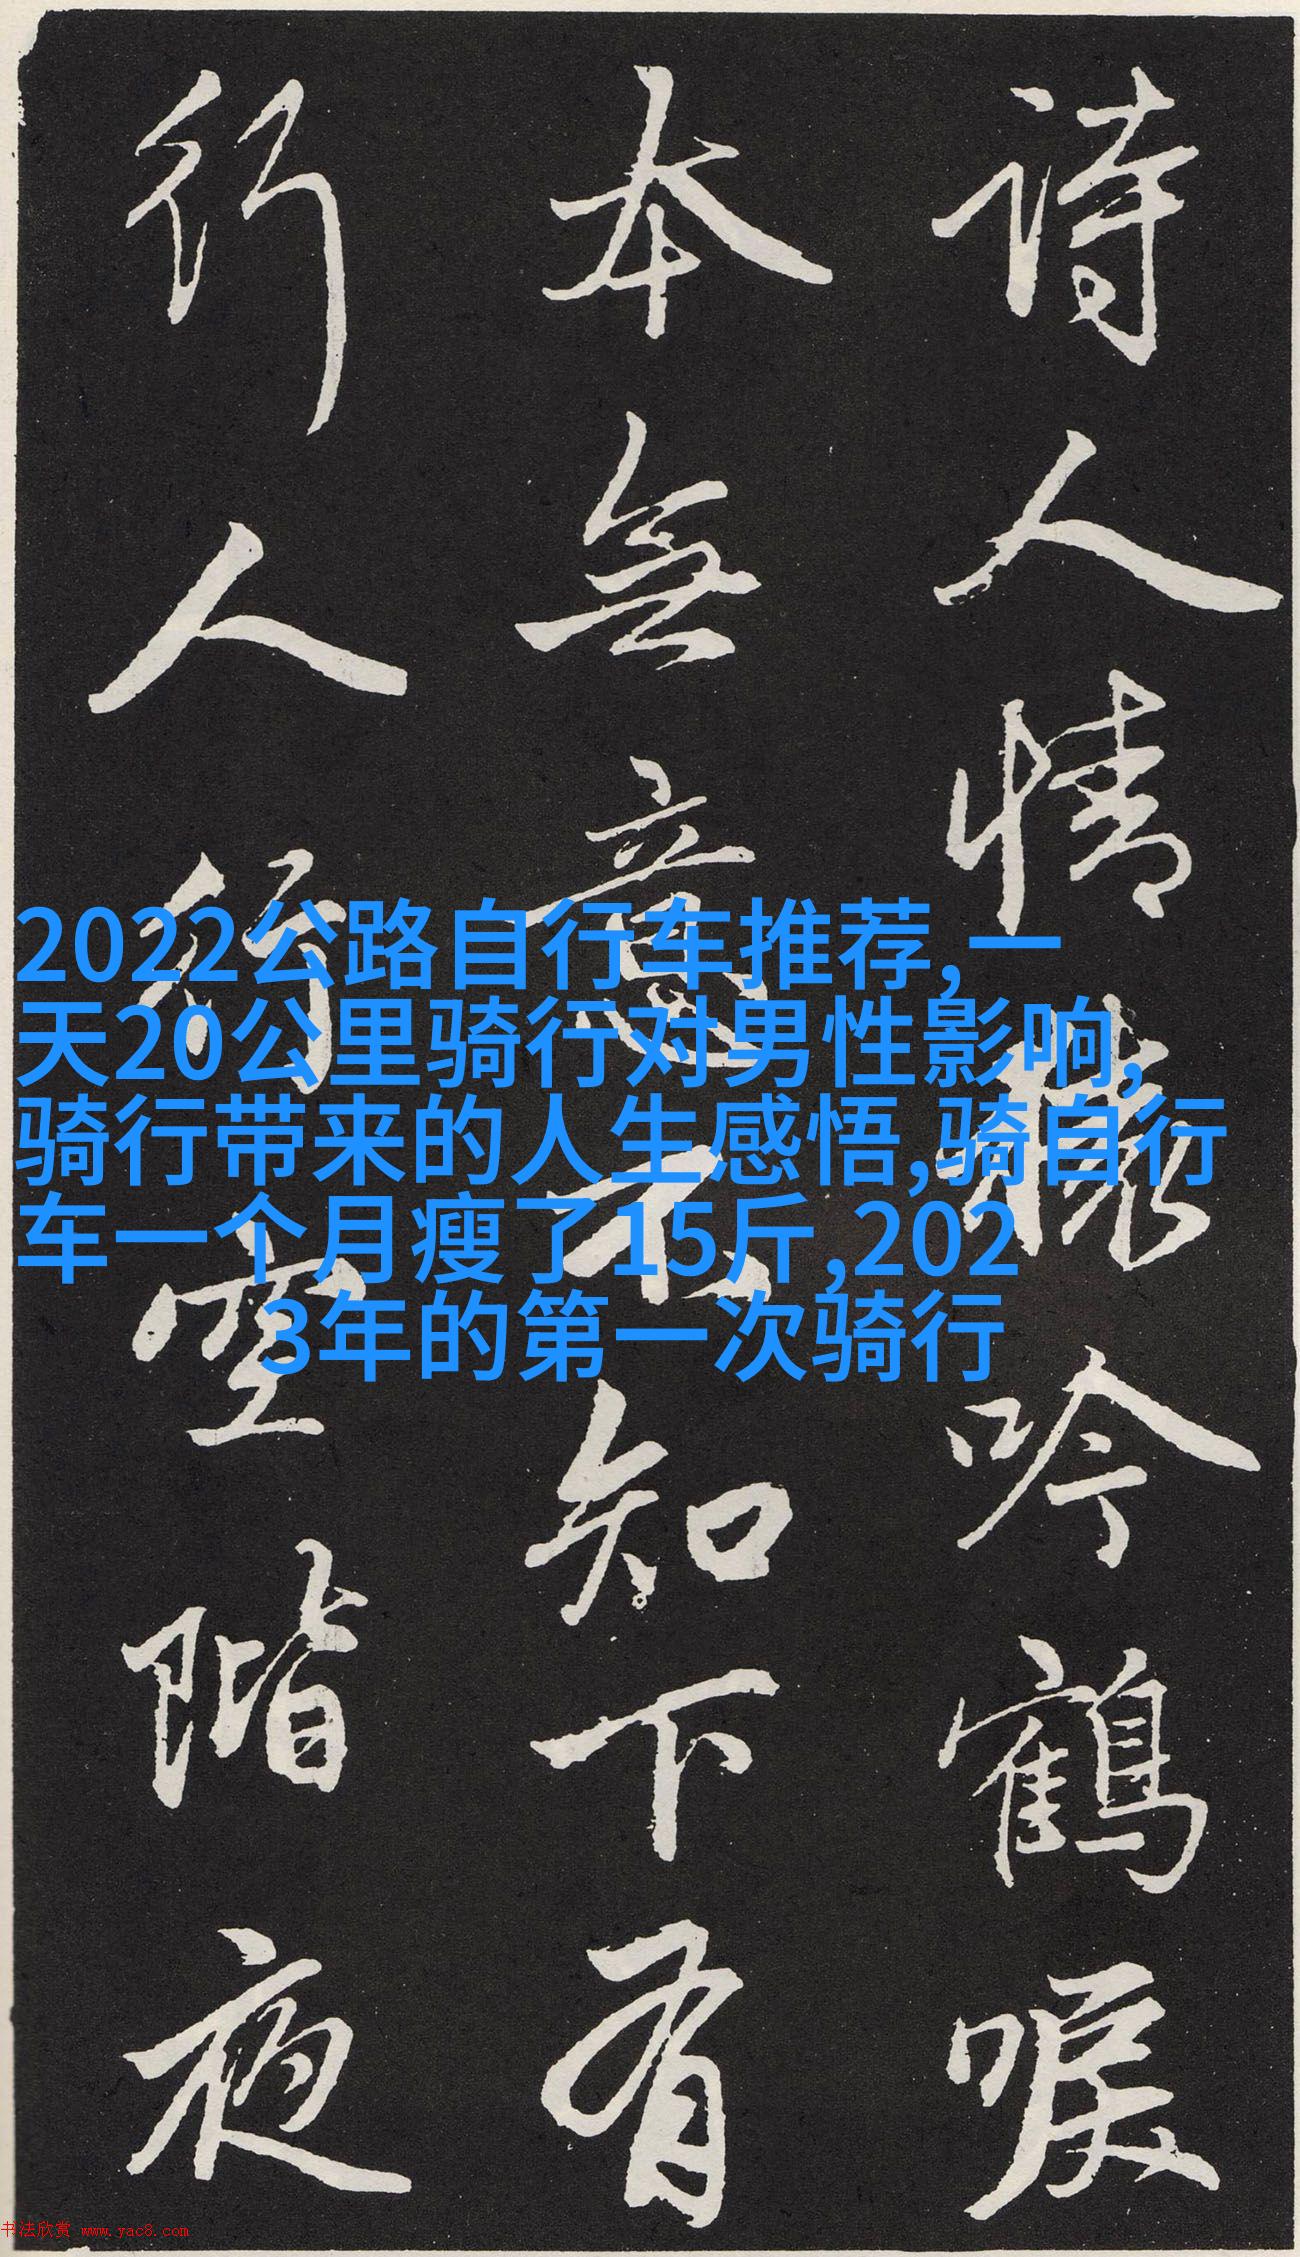 詩人情猿吟鶴唳
本無意不知下有
行人行空階夜
2022公路自行车推荐,一
天20公里骑行对男性影响,
骑行带来的人生感悟,骑自行
车一个月瘦了15斤,202
3年的第一次骑行
书法欣赏 www.yac8.com